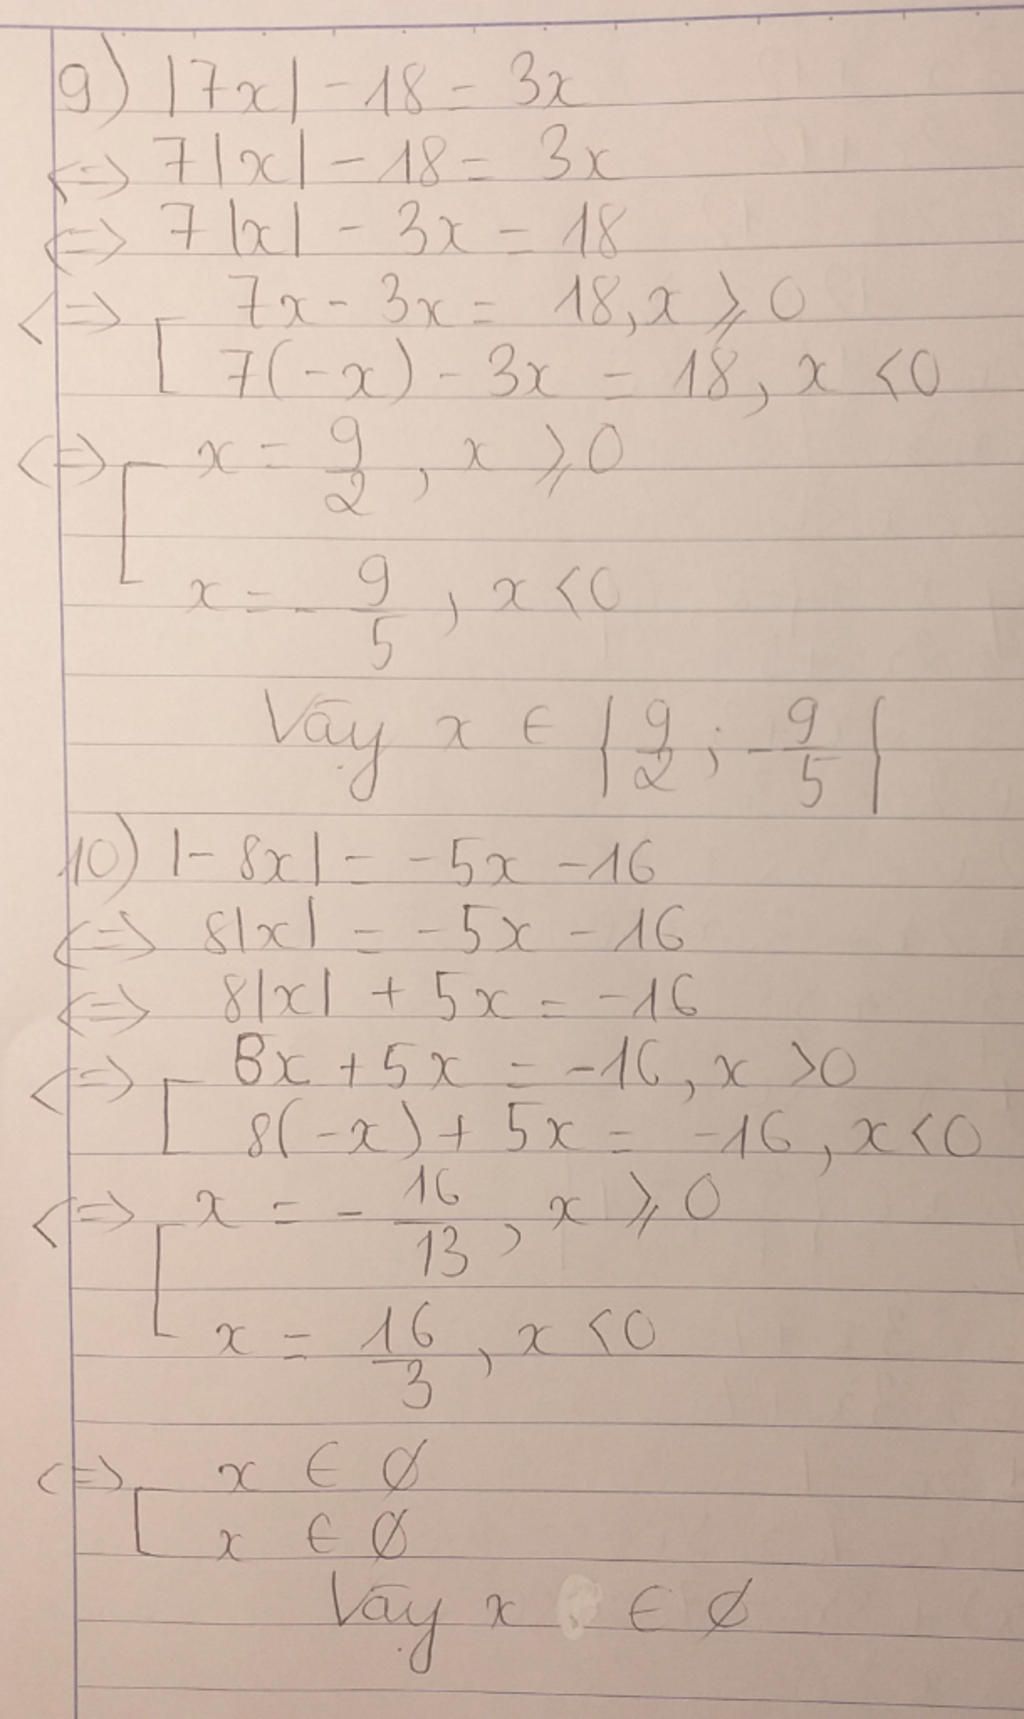 9) |7x| - 18 = 3x
<=> 7|x| - 18 = 3x
<=> 7|x| - 3x = 18
<=> [ 7x - 3x = 18, x ⩾ 0
7(-x) - 3x = 18, x < 0
<=> [ x = 9/2, x ⩾ 0
x = -9/5, x < 0
Vậy x ∈ {9/2; -9/5}
10) |-8x| = -5x - 16
<=> 8|x| = -5x - 16
<=> 8|x| + 5x = -16
<=> [ 8x + 5x = -16, x > 0
8(-x) + 5x = -16, x < 0
<=> [ x = -16/13, x ⩾ 0
x = 16/3, x < 0
<=> [ x ∈ ∅
x ∈ ∅
Vậy x ∈ ∅